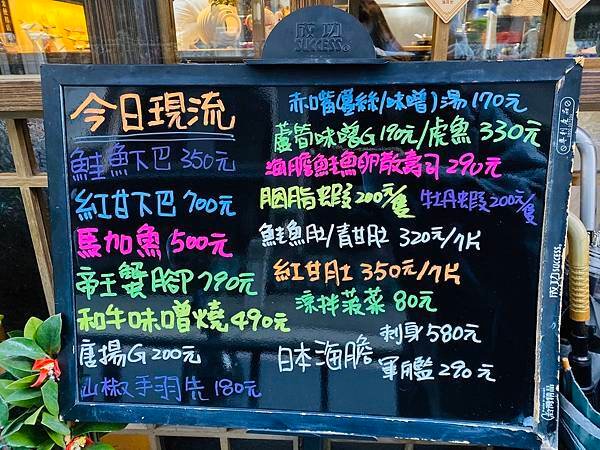 成功
SUCCESS®
今日現流
鮭魚下巴 350元
紅甘下巴 700元
馬加魚 500元
帝王蟹腳 790元
和牛味噌燒 490元
唐揚G 200元
山椒手羽先 180元
赤嘴薑絲/味噌湯 170元
蘆筍味噌G 190元/虎魚 330元
海膽鮭魚卵散壽司 290元
胭脂蝦 200元/隻 牡丹蝦 200元/隻
鮭魚肚/青甘肚 320元/7片
紅甘肚 350元/7片
涼拌菠菜 80元
日本海膽
刺身 580元
軍艦 290元
成功 SUCCESS